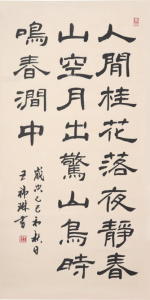 人閒桂花落夜靜春
山空月出驚山鳥時
鳴春澗中
歲次己巳初秋日
琳書